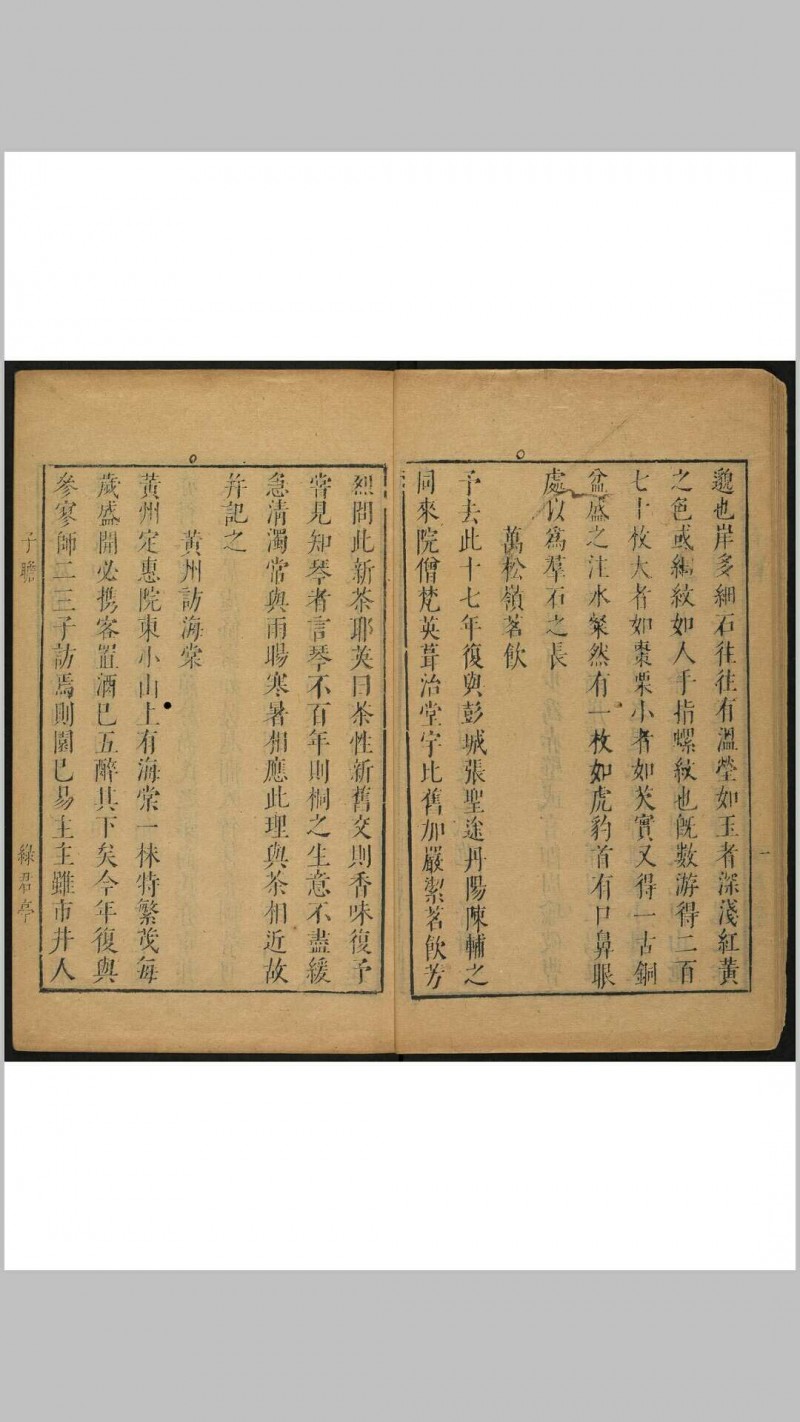 邈也岸多細石往往有溫瑩如玉者深淺紅黃
之色或細紋如人手指螺紋也旣數游得二百
七十枚大者如棗栗小者如芡實又得一古銅
盆盛之注水粲然有一枚如虎豹首有口鼻眼
處以爲羣石之長
萬松嶺茗飲
予去此十七年復與彭城張聖途丹陽陳輔之
同來院僧梵英葺治堂宇比舊加嚴潔茗飲芳
烈問此新茶耶英曰茶性新舊交則香味復予
嘗見知琴者言琴不百年則桐之生意不盡緩
急清濁常與雨暘寒暑相應此理與茶相近故
幷記之
黃州訪海棠
黃州定惠院東小山上有海棠一株特繁茂每
歲盛開必携客置酒已五醉其下矣今年復與
參寥師二三子訪焉則園已易主主雖市井人
子瞻
綠君亭